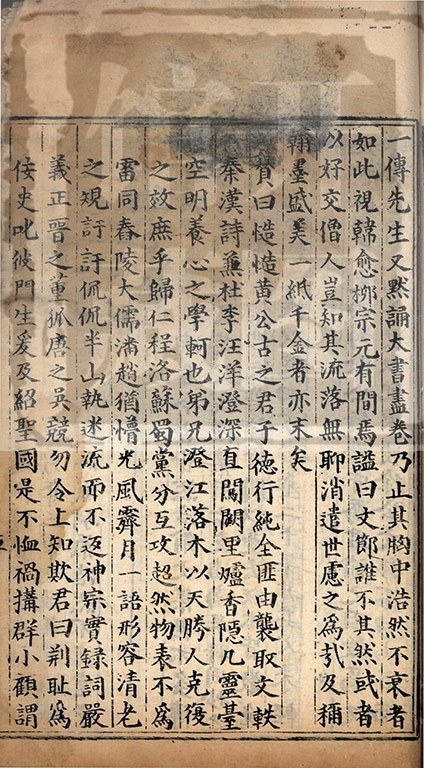 一傳先生又默誦大書盡卷乃止其胸中浩然不衰者
如此視韓愈栁宗元有間焉謚曰文節誰不其然或者
以好交僧人豈知其流落無聊消遣世慮之為㦲及稱
翰墨盛美一紙千金者亦末矣
賛曰慥慥黃公古之君子徳行純全匪由襲取文軼
秦漢詩兼杜李汪洋澄深直闖闕里爐香隱几靈臺
空明養心之學軻也弟兄澄江落木以天勝人克復
之效庶乎歸仁程洛蘇蜀黨分互攻超然物表不為
雷同舂陵大儒潘趙猶懵光風霽月一語形容清老
之規訏訏侃侃半山執迷流而不返神宗實録詞嚴
義正晉之董狐唐之吳競勿令上知欺君曰荆耻為
佞史叱彼門生爰及紹聖國是不恤禍搆群小顧謂